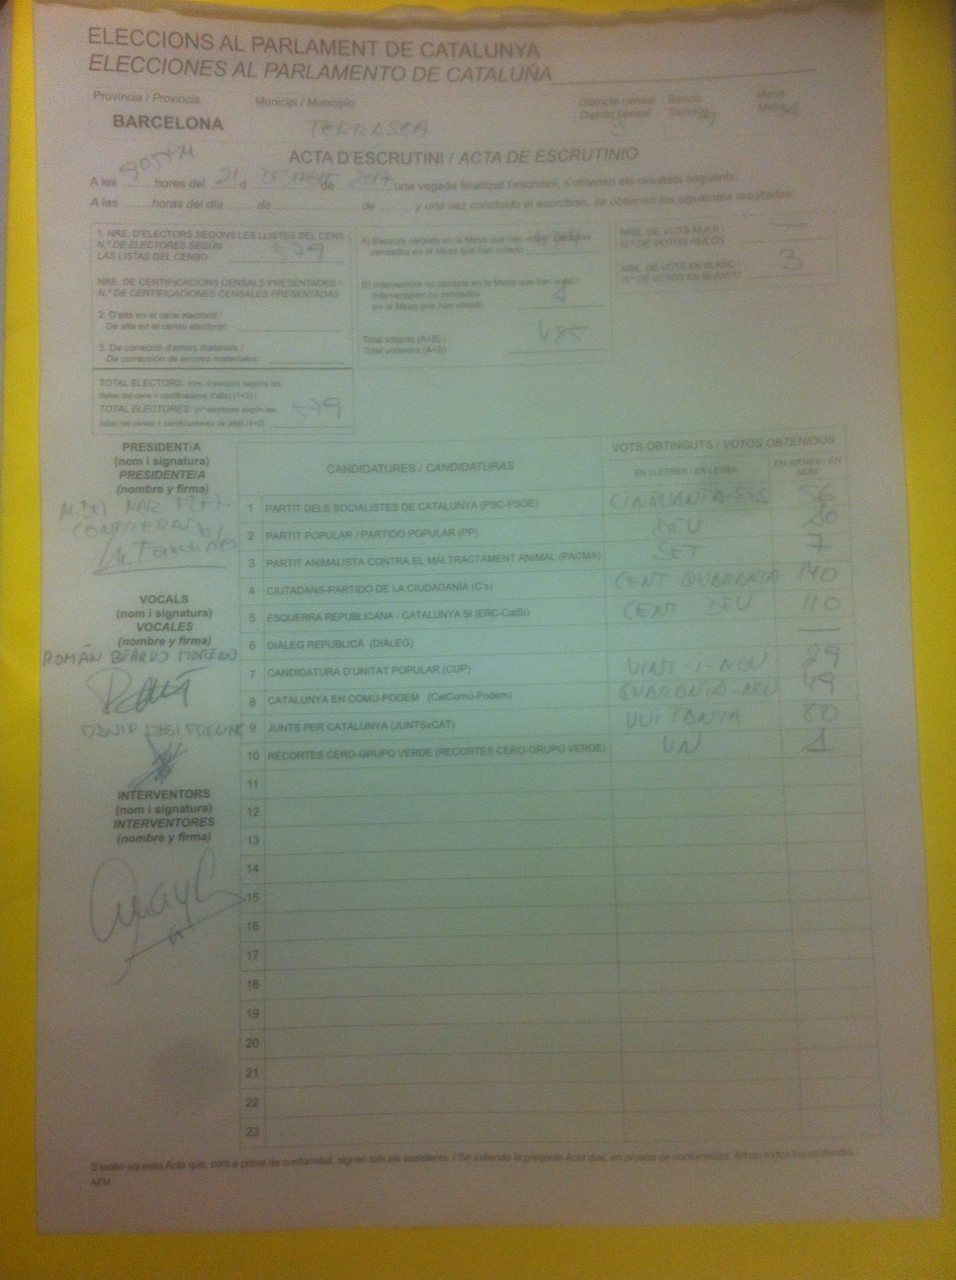 ELECCIONS AL PARLAMENT DE CATALUNYA
ELECCIONES AL PARLAMENTO DE CATALUÑA
Província / Provincia Municipi / Municipio Districte censal Secció Mesa
Distrito censal Sección Mesa
BARCELONA TERRASSA
ACTA D'ESCRUTINI / ACTA DE ESCRUTINIO
A les hores del 21 d de 2017 una vegada finalitzat l'escrutini, s'obtenen els resultats següents:
A las horas del día de de y una vez concluido el escrutinio, se obtienen los siguientes resultados:
1. NRE. D'ELECTORS SEGONS LES LLISTES DEL CENS /
N.º DE ELECTORES SEGÚN
LAS LISTAS DEL CENSO 579
NRE. DE CERTIFICACIONS CENSALS PRESENTADES /
N.º DE CERTIFICACIONES CENSALES PRESENTADAS
2. D'alta en el cens electoral /
De alta en el censo electoral:
3. De correcció d'errors materials /
De corrección de errores materiales:
TOTAL ELECTORS: (nre. d'electors segons les
llistes del cens + certificacions d'alta) (1+2) /
TOTAL ELECTORES: (nº electores según las
listas del censo + certificaciones de alta) (1+2) 579
A) Electors censats en la Mesa que han votat /
censados en la Mesa que han votado
B) Interventors no censats en la Mesa que han votat /
Interventores no censados
en la Mesa que han votado
Total votants (A+B) /
Total votantes (A+B) 485
NRE. DE VOTS NULS /
N.º DE VOTOS NULOS —
NRE. DE VOTS EN BLANC /
N.º DE VOTOS EN BLANCO 3
PRESIDENT/A
(nom i signatura)
PRESIDENTE/A
(nombre y firma)
CONTRERAS
VOCALS
(nom i signatura)
VOCALES
(nombre y firma)
ROMÁN BEARDO MORENO
DAVID
INTERVENTORS
(nom i signatura)
INTERVENTORES
(nombre y firma)
CANDIDATURES / CANDIDATURAS VOTS OBTINGUTS / VOTOS OBTENIDOS
EN LLETRES / EN LETRA EN XIFRES / EN NÚM.
1 PARTIT DELS SOCIALISTES DE CATALUNYA (PSC-PSOE) CINQUANTA-SIS 56
2 PARTIT POPULAR / PARTIDO POPULAR (PP) DEU 10
3 PARTIT ANIMALISTA CONTRA EL MALTRACTAMENT ANIMAL (PACMA) SET 7
4 CIUTADANS-PARTIDO DE LA CIUDADANÍA (C's) CENT QUARANTA 140
5 ESQUERRA REPUBLICANA - CATALUNYA SÍ (ERC-CatSí) CENT DEU 110
6 DIÀLEG REPUBLICÀ (DIÀLEG) —
7 CANDIDATURA D'UNITAT POPULAR (CUP) VINT-I-NOU 29
8 CATALUNYA EN COMÚ-PODEM (CatComú-Podem) QUARANTA-NOU 49
9 JUNTS PER CATALUNYA (JUNTSxCAT) VUITANTA 80
10 RECORTES CERO-GRUPO VERDE (RECORTES CERO-GRUPO VERDE) UN 1
11
12
13
14
15
16
17
18
19
20
21
22
23
S'estén aquesta Acta que, com a prova de conformitat, signen tots els assistents. / Se extiende la presente Acta que, en prueba de conformidad, firman todos los asistentes.
AEM